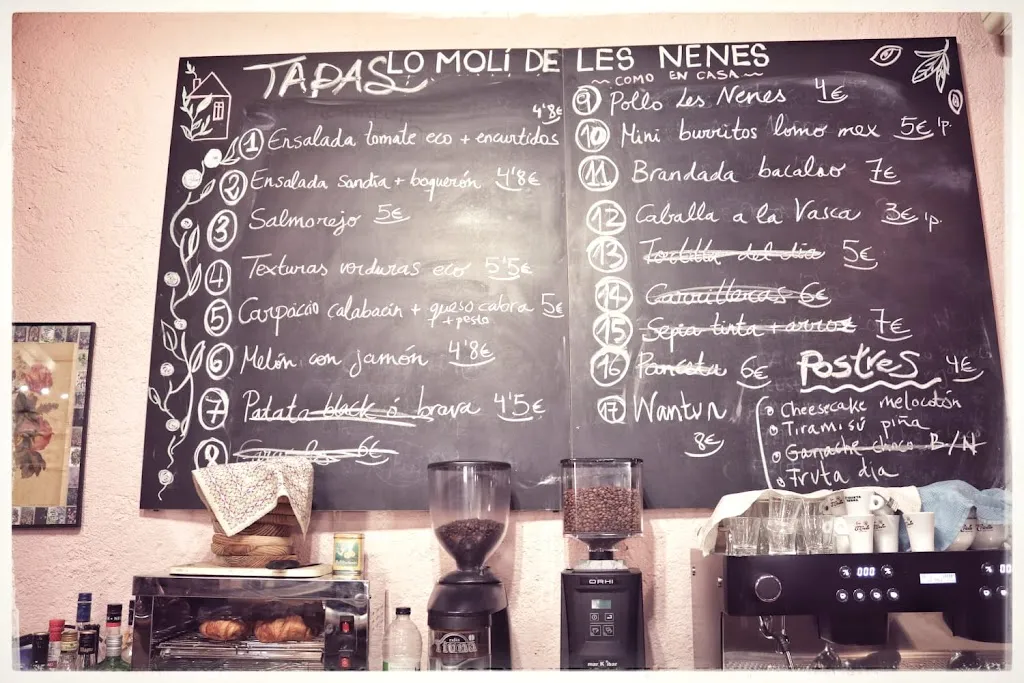 TAPAS
LO MOLÍ DE LES NENES
~ COMO EN CASA ~
4'8€
1 Ensalada tomate eco + encurtidos
2 Ensalada sandía + boquerón 4'8€
3 Salmorejo 5€
4 Texturas verduras eco 5'5€
5 Carpaccio calabacín + queso cabra 5€
+ pesto
6 Melón con jamón 4'8€
7 Patata black ó brava 4'5€
8 6€
9 Pollo Les Nenes 4€
10 Mini burritos lomo mex 5€ 1p.
11 Brandada bacalao 7€
12 Caballa a la Vasca 3€ 1p.
13 Tortilla del día 5€
14 Carrilleras 6€
15 Sepia tinta + arroz 7€
16 Panceta 6€
17 Wantun
8€
Postres 4€
Cheesecake melocotón
Tiramisú piña
Ganache choco B/N
Fruta día
ORHI
000